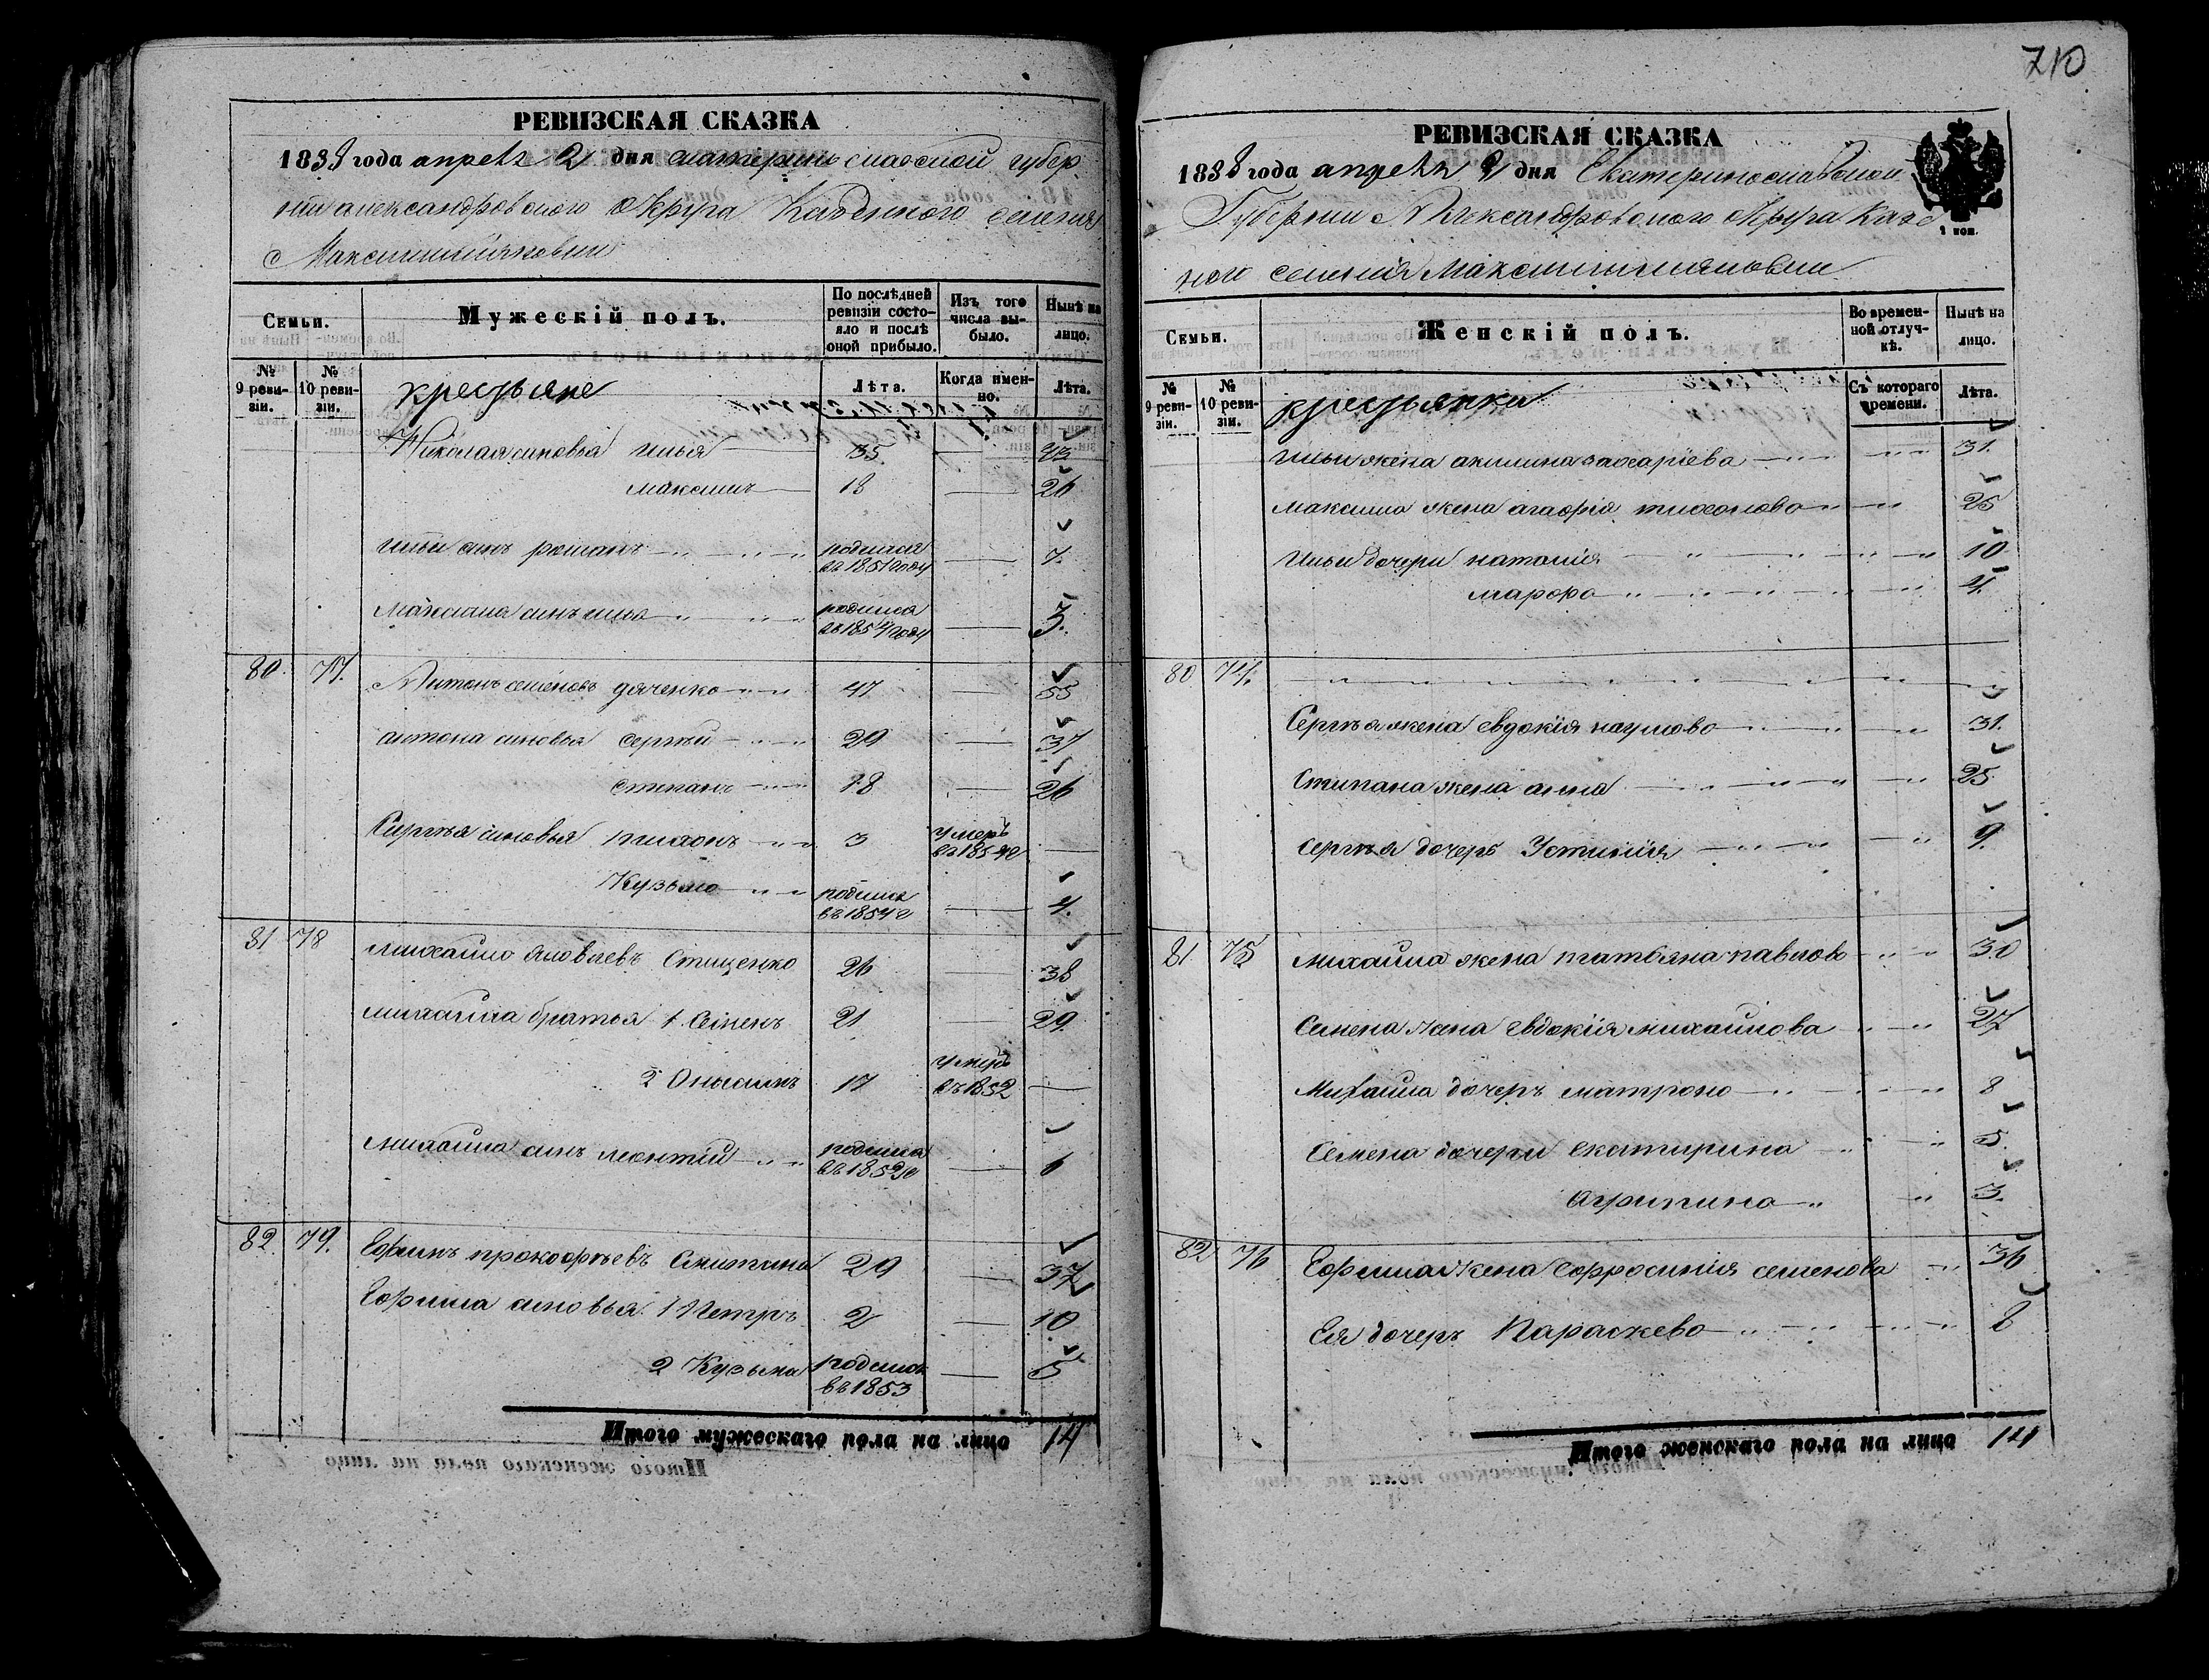 710
РЕВИЗСКАЯ СКАЗКА
1858 года апреля 2 дня екатеринославской губер
нии александровского округа Казенного селения
Максимильяновки
Семьи.
Мужескій полъ.
По послѣдней ревизіи состояло и послѣ оной прибыло.
Изъ того числа выбыло.
Нынѣ на лицо.
№ 9 ревизіи.
№ 10 ревизіи.
крестьяне
Лѣта.
Когда именно.
Лѣта.
Николая синовья илья 35 43
максимъ 18 26
ильи синъ романъ родился въ 1851 году 7.
Максима синъ илья родился въ 1854 году 3.
80. 77. Антонъ семеновъ дяченко 47 55
антона синовья сергѣй 29 37
степанъ 18 26
Сергѣя синовья тихонъ 3 умеръ въ 1854 г
Кузьма родился въ 1854 г 4.
81 78 михайло яковлевъ Стищенко 26 38
михайла братья 1 Семенъ 21 29
2 Онысимъ 17 умеръ въ 1852
михайла синъ леонтий родился въ 1852 г 6
82. 79. Ефимъ прокофьевъ Сметана 29 37
Ефима синовья 1 Петръ 2 10
2 Кузьма родился въ 1853 5
Итого мужескаго пола на лицо 14
РЕВИЗСКАЯ СКАЗКА
1858 года апреля 2 дня Екатеринославской
Губернии Александровского округа Казе
ного селения Максимильяновки
1 коп.
Семьи.
Женскій полъ.
Во временной отлучкѣ.
Нынѣ на лицо.
№ 9 ревизіи.
№ 10 ревизіи.
крестьянки
Съ котораго времени.
Лѣта.
ильи жена акилина захаріева 31.
максима жена агафія тихонова 25
ильи дочери наталія 10
марфа 4.
80 74.
Сергѣя жена евдокія наумова 31.
Стипана жена анна 25
сергѣя дочерь Устинія 9.
81. 75 михайла жена татьяна павлова 30
Семена жена евдокія михайлова 27
Михайла дочерь матрона 8
Семена дочери екатирина 5.
агрипина 3.
82 76 Ефима жена Ефросинія семенова 36
Ея дочерь Параскева 8
Итого женскаго пола на лицо 14